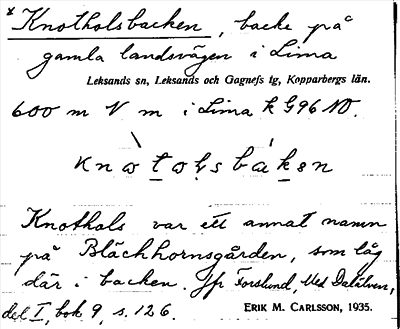 * Knotholsbacken, backe på
gamla landsvägen i Lima
Leksands sn, Leksands och Gagnefs tg, Kopparbergs län.
600 m V m i Lima k G96 NO.
knotoļsbakən
Knothols var ett annat namn
på Bläckhornsgården, som låg
där i backen. Jfr Forslund, Med Dalälven,
del I, bok 9, s. 126.
ERIK M. CARLSSON, 1935.